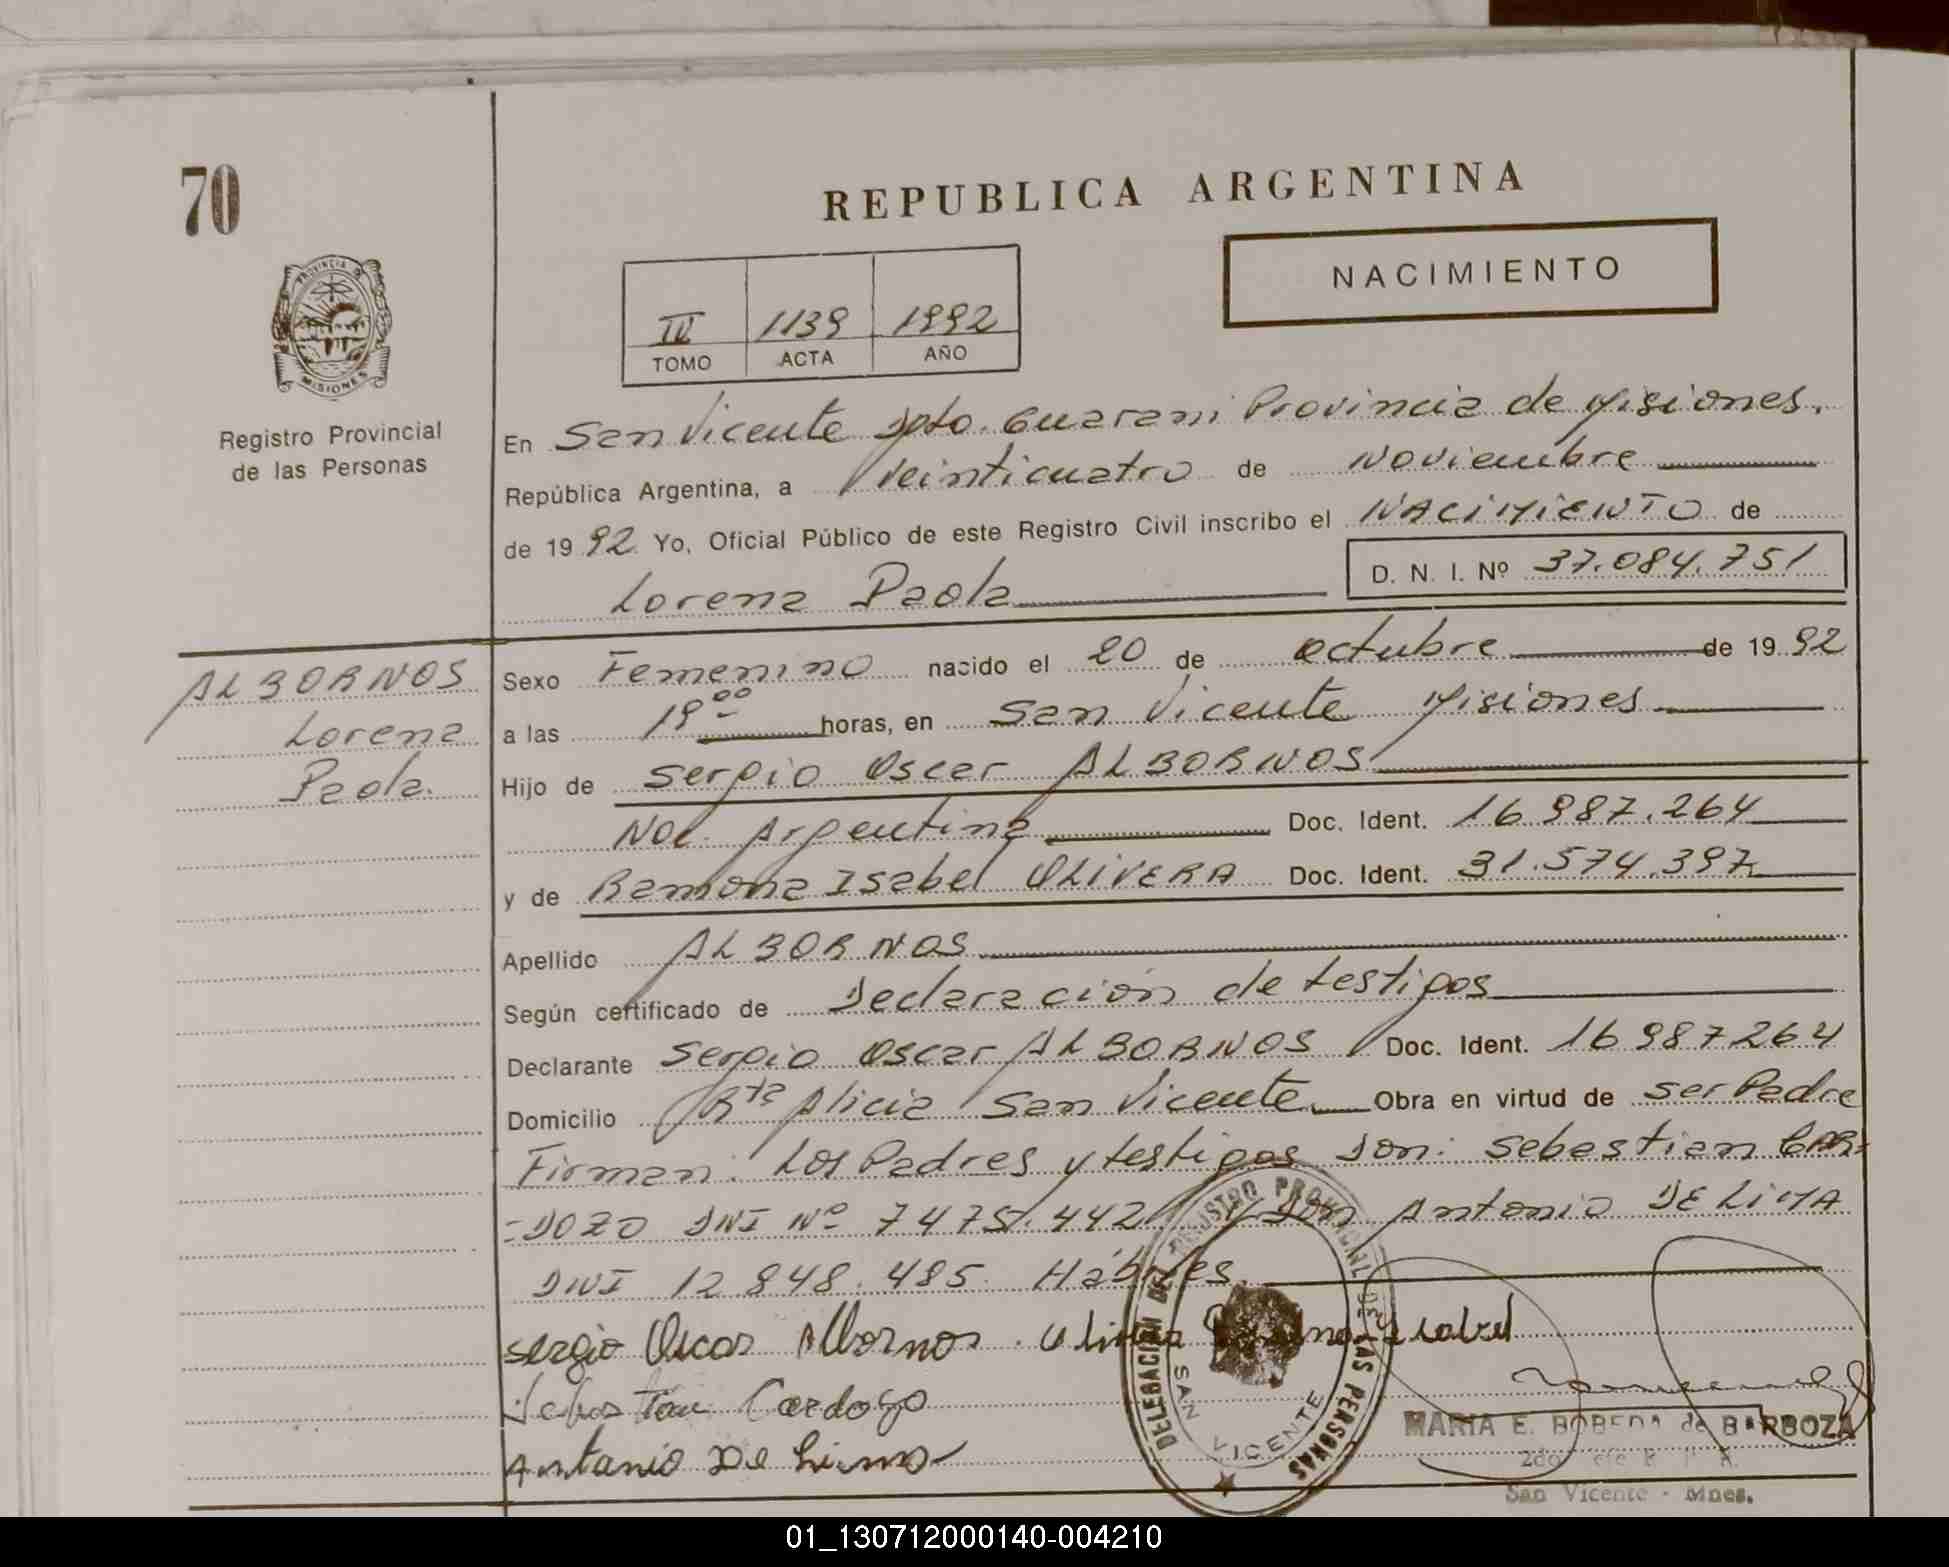 70
REPUBLICA ARGENTINA
NACIMIENTO
IV 1139 1992
TOMO ACTA AÑO
PROVINCIA DE
MISIONES
Registro Provincial
de las Personas
En San Vicente Dpto. Guarani Provincia de Misiones.
República Argentina, a Veinticuatro de Noviembre
de 1992 Yo, Oficial Público de este Registro Civil inscribo el NACIMIENTO de
Lorena Paola D. N. I. Nº 37.084.751
ALBORNOS
Lorena
Paola.
Sexo Femenino nacido el 20 de octubre de 1992
a las 19 00 horas, en San Vicente Misiones
Hijo de Sergio Oscar ALBORNOS
Nac. Argentina Doc. Ident. 16.987.264
y de Ramona Isabel OLIVERA Doc. Ident. 31.574.397
Apellido ALBORNOS
Según certificado de Declaración de testigos
Declarante Sergio Oscar ALBORNOS Doc. Ident. 16987264
Domicilio Rta Alicia San Vicente Obra en virtud de ser Padre
Firman: Los Padres y testigos Don: Sebastian CAR-
-DOZO DNI Nº 7475.442 y Don Antonio DE LIMA
DNI 12.848.485. Hábiles.
Sergio Oscar Albornos. Olivera Ramona Isabel
Sebastian Cardozo
Antonio De Lima
DELEGACIÓN DEL REGISTRO PROVINCIAL DE LAS PERSONAS
SAN VICENTE
MARIA E. BOBEDA de BARBOZA
San Vicente - Mnes.
01_130712000140-004210